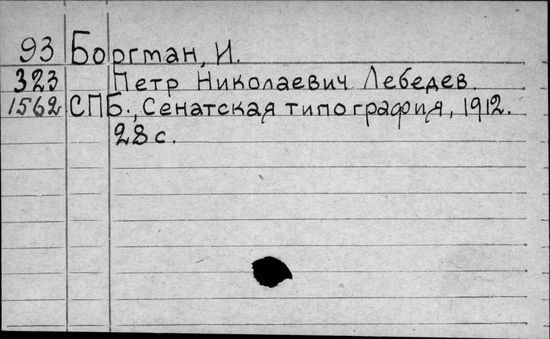 93 Боргман, И.
323 Петр Николаевич Лебедев.
1562 СПБ., Сенатская типография, 1912.
28 с.